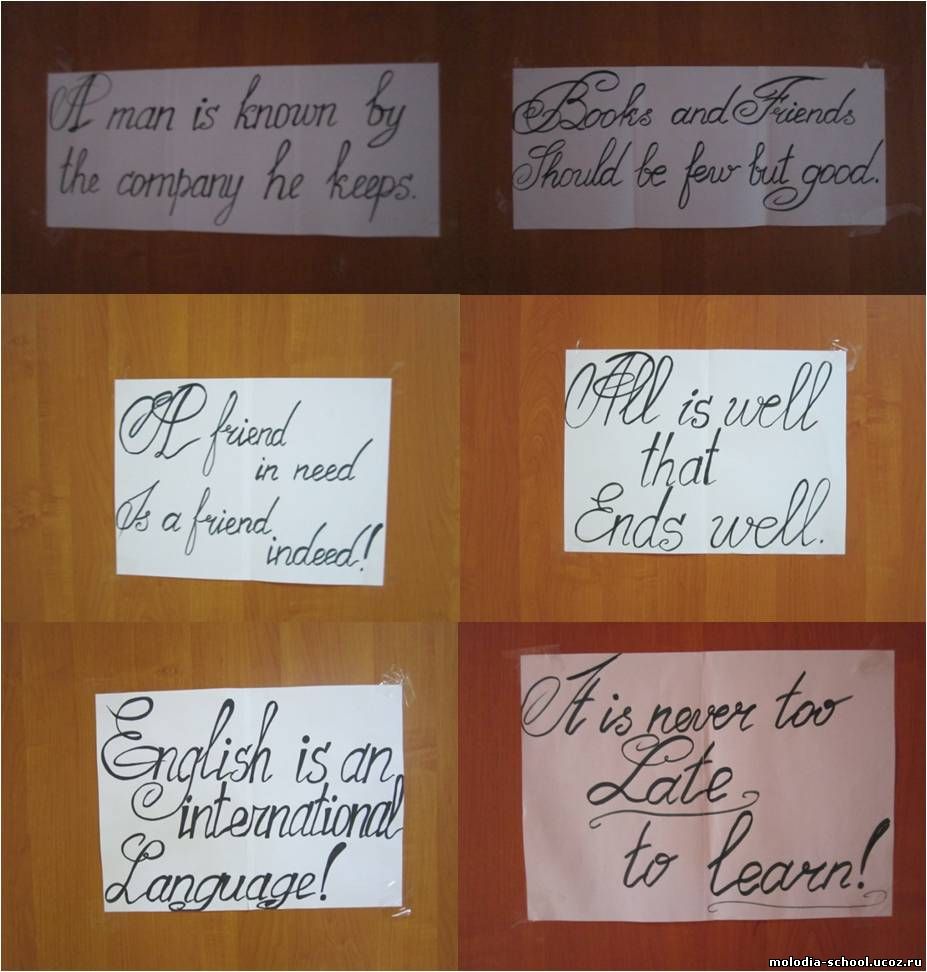 A man is known by
the company he keeps.
Books and Friends
Should be few but good.
A friend
in need
Is a friend
indeed!
All is well
that
Ends well.
English is an
international
Language!
It is never too
Late
to learn!
molodia-school.ucoz.ru